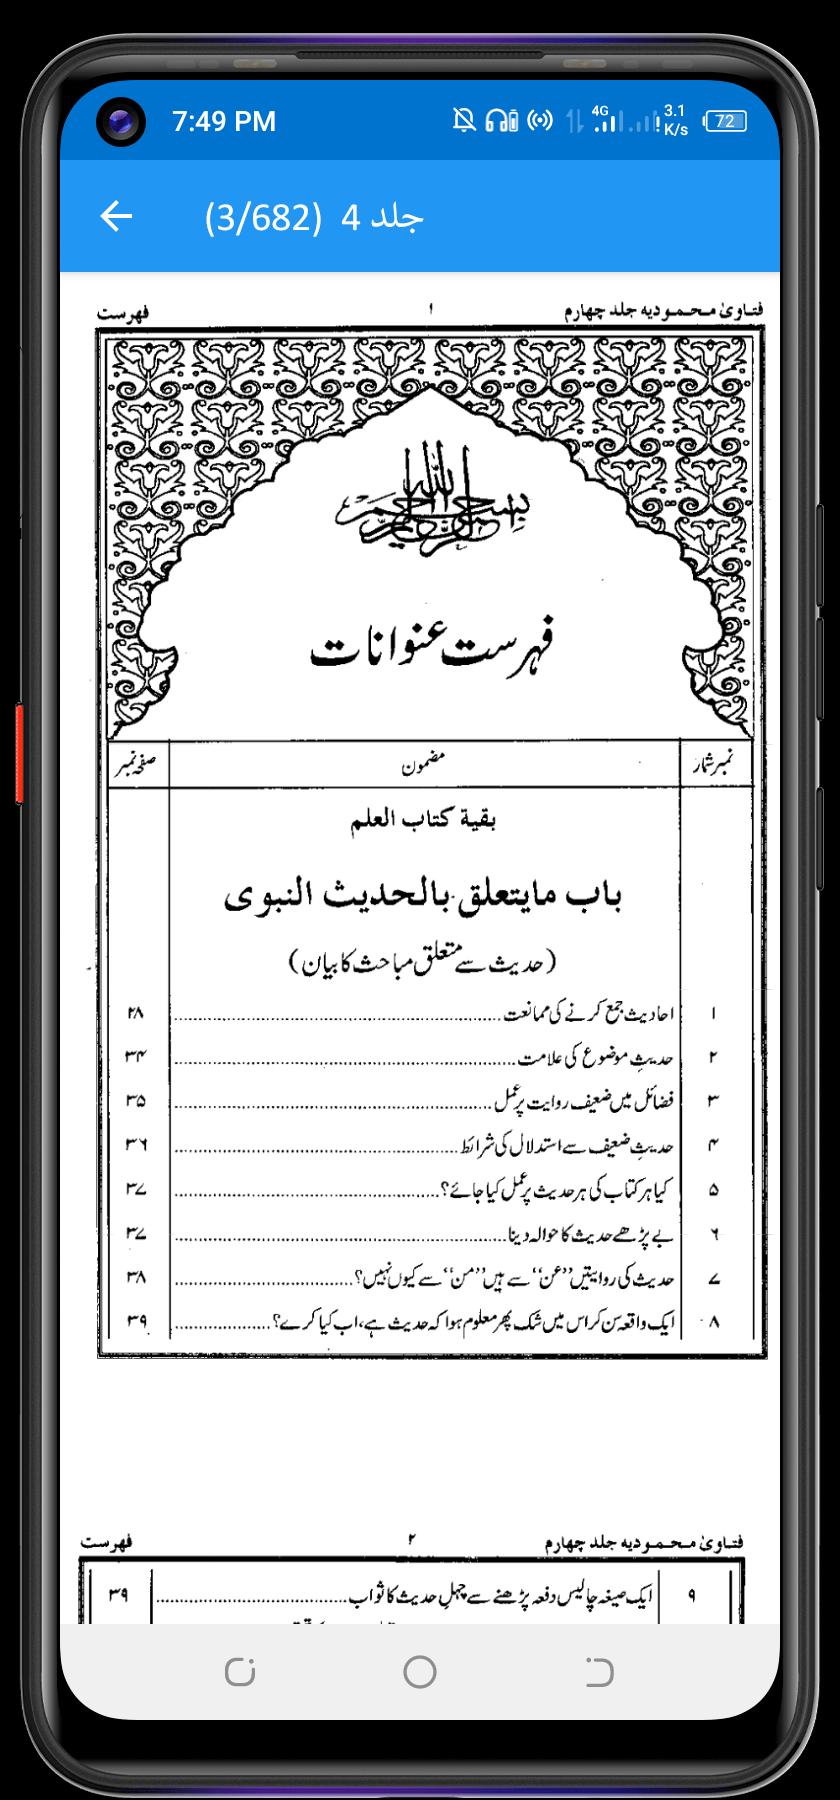 7:49 PM
4G
3.1 K/s
72
جلد 4 (3/682)
فتاویٰ محمودیہ جلد چہارم ۱ فہرست
بسم اللہ الرحمن الرحیم
فہرست عنوانات
نمبر شمار مضمون صفحہ نمبر
بقیة کتاب العلم
باب مایتعلق بالحدیث النبوی
(حدیث سے متعلق مباحث کا بیان)
۱ احادیث جمع کرنے کی ممانعت ۲۸
۲ حدیثِ موضوع کی علامت ۳۴
۳ فضائل میں ضعیف روایت پر عمل ۳۵
۴ حدیثِ ضعیف سے استدلال کی شرائط ۳۶
۵ کیا ہر کتاب کی ہر حدیث پر عمل کیا جائے؟ ۳۷
۶ بے پڑھے حدیث کا حوالہ دینا ۳۷
۷ حدیث کی روایتیں ”عن“ سے ہیں ”من“ سے کیوں نہیں؟ ۳۸
۸ ایک واقعہ سن کر اس میں شک پھر معلوم ہوا کہ حدیث ہے، اب کیا کرے؟ ۳۹
فتاویٰ محمودیہ جلد چہارم ۲ فہرست
۹ ایک صیغہ چالیس دفعہ پڑھنے سے چہل حدیث کا ثواب ۳۹